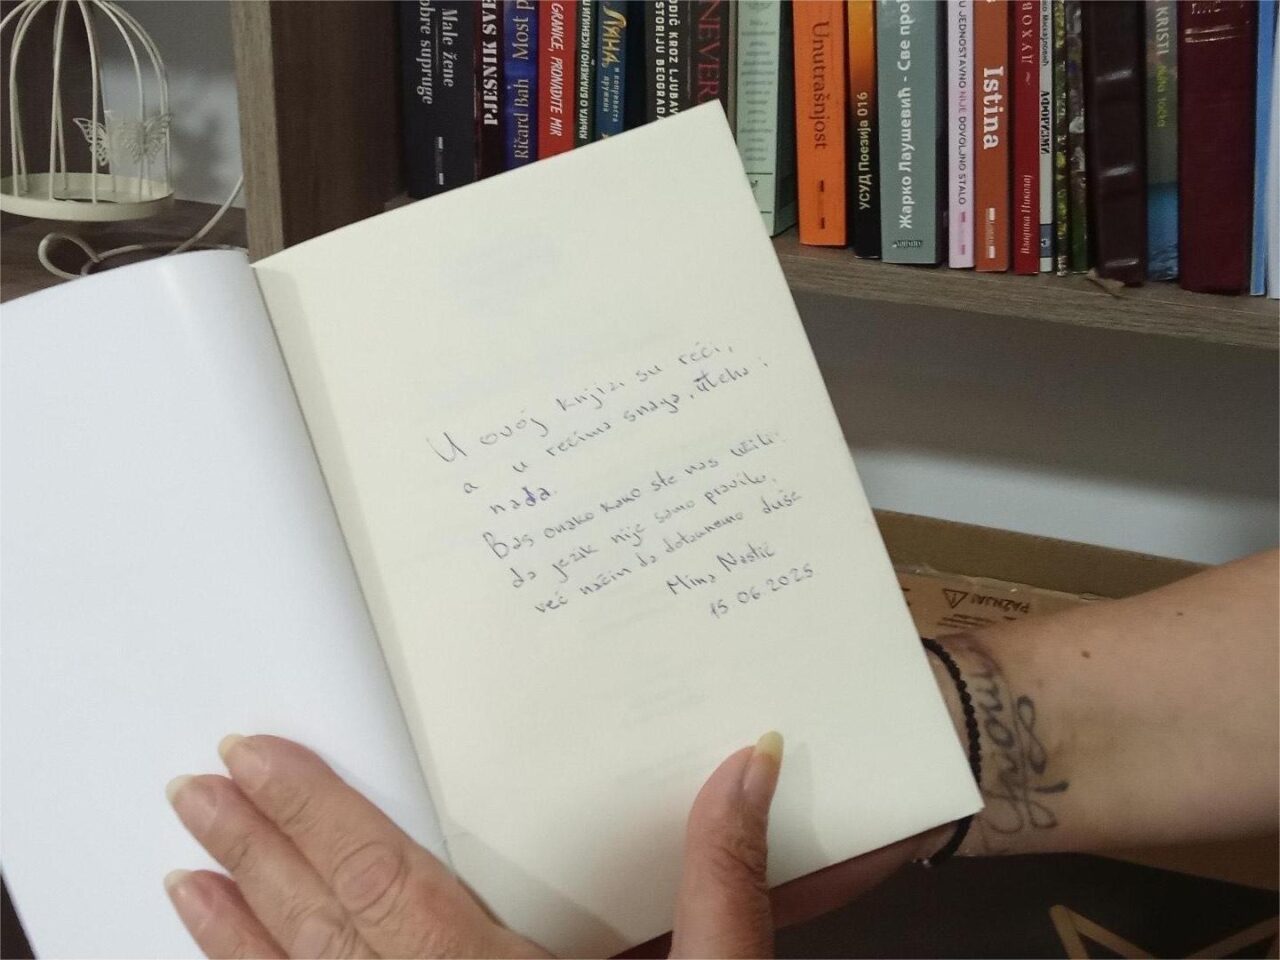 Male žene
dobre supruge
PJESNIK SVE
Ričard Bah Most p
GRANICE, PRONAĐITE MIR
КЊИГА О БЛАЖЕНОЈ КСЕНИЈИ П
ЛИНА
и
дружина
ODIČ KROZ LJUBAV
ISTORIJU BEOGRADA
NEVER
Unutrašnjost
УСУД Поезија 016
Жарко Лаушевић - Све про
U JEDNOSTAVNO NIJE DOVOLJNO STALO
Istina
Владика Николај
ДУХОВ
АФОРИЗМИ
KRISTI
U ovoj knjizi su reči,
a u rečima snaga, uteha i
nada.
Baš onako kako ste nas učili
da jezik nije samo pravilo,
već način da dotaknemo duše
Mina Nastić
15.06.2025
PAŽNJA!